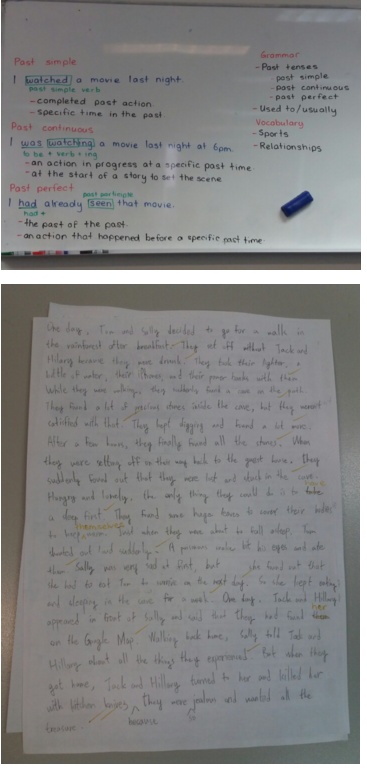 Past simple
I watched a movie last night.
past simple verb
- completed past action.
- specific time in the past.
Past continuous
I was watching a movie last night at 6pm.
to be + verb + ing
- an action in progress at a specific past time
- at the start of a story to set the scene
Past perfect
past participle
I had already seen that movie.
had +
- the past of the past.
- an action that happened before a specific past time.
Grammar
- Past tenses
- past simple
- past continuous
- past perfect
- Used to/usually
Vocabulary
- Sports
- Relationships
One day, Tim and Sally decided to go for a walk in
the rainforest after breakfast. They set off without Jack and
Hillary because they were drunk. They took their lighter, a
bottle of water, their iPhones and their power banks with them.
While they were walking, they suddenly found a cave on the path.
They found a lot of precious stones inside the cave, but they weren't
satisfied with that. They kept digging and found a lot more.
After a few hours, they finally found all the stones. When
they were setting off on their way back to the guest house, they
suddenly found out that they were lost and stuck in the cave.
Hungry and lonely, the only thing they could do is to
sleep first. They found some huge leaves to cover their bodies
themselves
to keep warm. Just when they were about to fall asleep, Tim
shouted out loud suddenly. A poisonous spider bit his eyes and
Sally was very sad at first, but she found out that
she had to eat Tim to survive on the next day. So she kept eating
and sleeping in the cave for a week. One day, Jack and Hillary
appeared in front of Sally and said that they had found
her
on the Google Map. Walking back home, Sally told Jack and
Hillary about all the things they experienced. But when they
got home, Jack and Hillary turned to her and killed her
with kitchen knives. They were jealous and wanted all the
treasure.
because